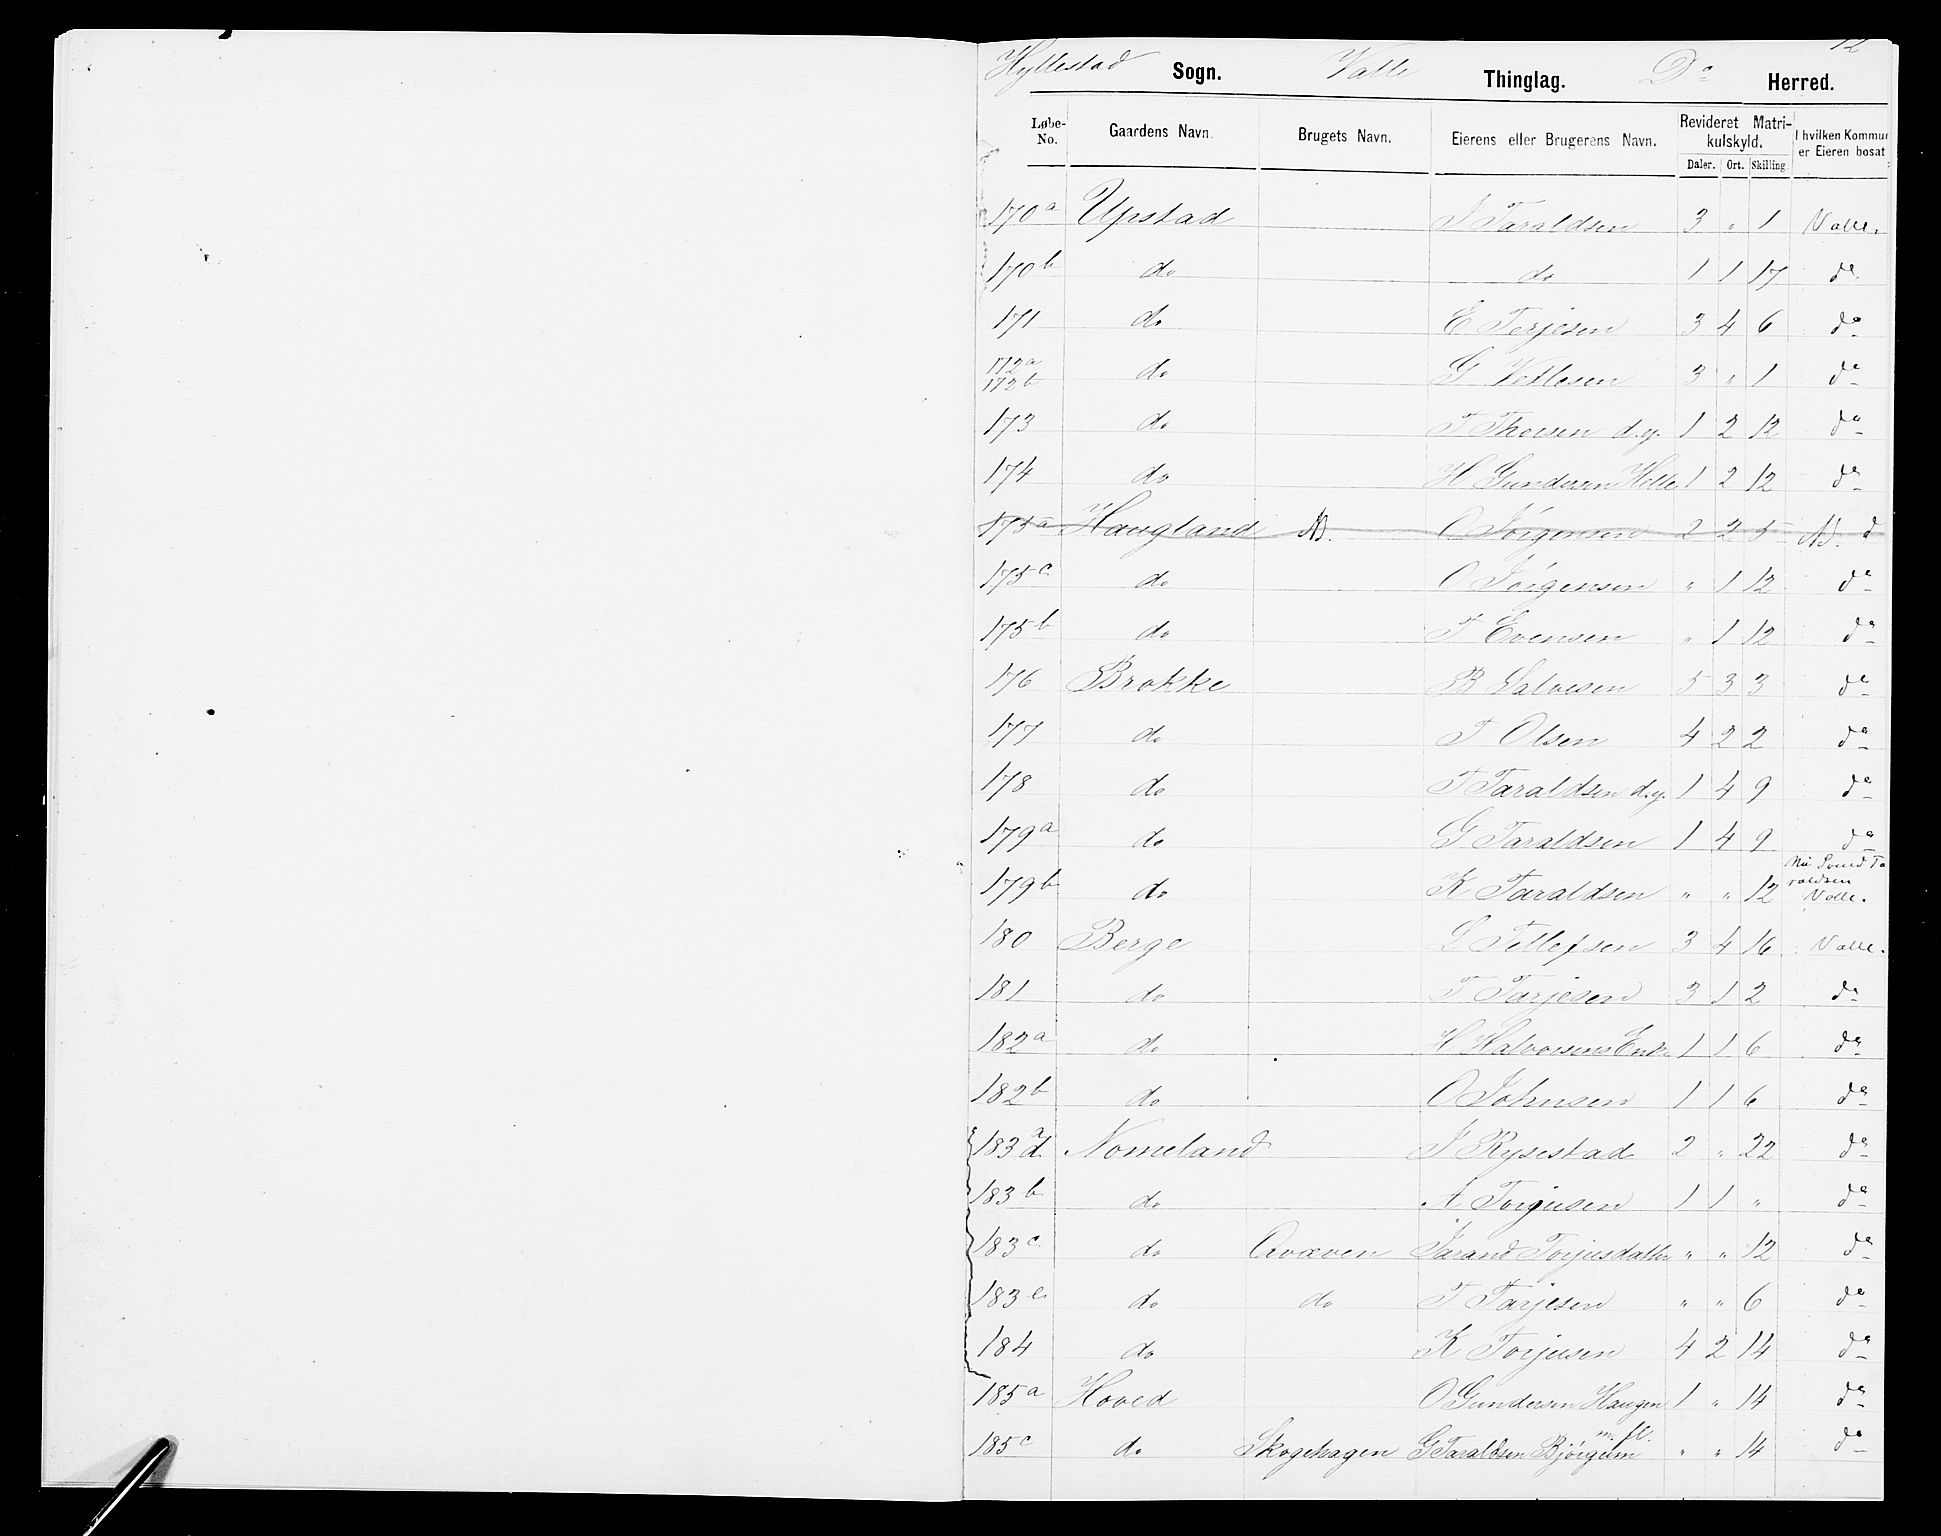 12
Hyllestad Sogn. Valle Thinglag. Do Herred.
Løbe-No. Gaardens Navn. Brugets Navn. Eierens eller Brugerens Navn. Revideret Matrikulskyld. Daler. Ort. Skilling. I hvilken Kommun er Eieren bosat
170a Upstad J Taraldsen 3 " 1 Valle.
170b do do 1 1 17 do
171 do E Terjesen 3 4 6 do
172a 172b do G Vetlesen 3 " 1 do
173 do T Thorsen d.y. 1 2 12 do
174 do H Gundersen Helle 1 2 12 do
175a Haugland NB. O Jörgensen 2 2 5 NB. d
175c do O Jörgensen " 1 12 do
175b do T Evensen " 1 12 do
176 Brokke B Salvesen 5 3 3 do
177 do T Olsen 4 2 2 do
178 do T Taraldsen d.y. 1 4 9 do
179a do G Taraldsen 1 4 9 do
179b do K Taraldsen " " 12 Nu Svend Taraldsen Valle.
180 Berge L Tellefsen 3 4 16 Valle.
181 do T Tarjesen 3 1 2 do
182a do H Halvorsens Enke 1 1 6 do
182b do O Johnsen 1 1 6 do
183 a d Nomeland J Rysestad 2 " 22 do
183b do A Torjusen 1 1 " do
183c do Qvæven Jarand Torjusdatter " " 12 do
183e do do T Tarjesen " " 6 do
184 do K Torjusen 4 2 14 do
185a Hoved O Gundersen Haugen 1 " 14 do
185c do Skogehagen G Taraldsen Björgum m. fl. " " 14 do